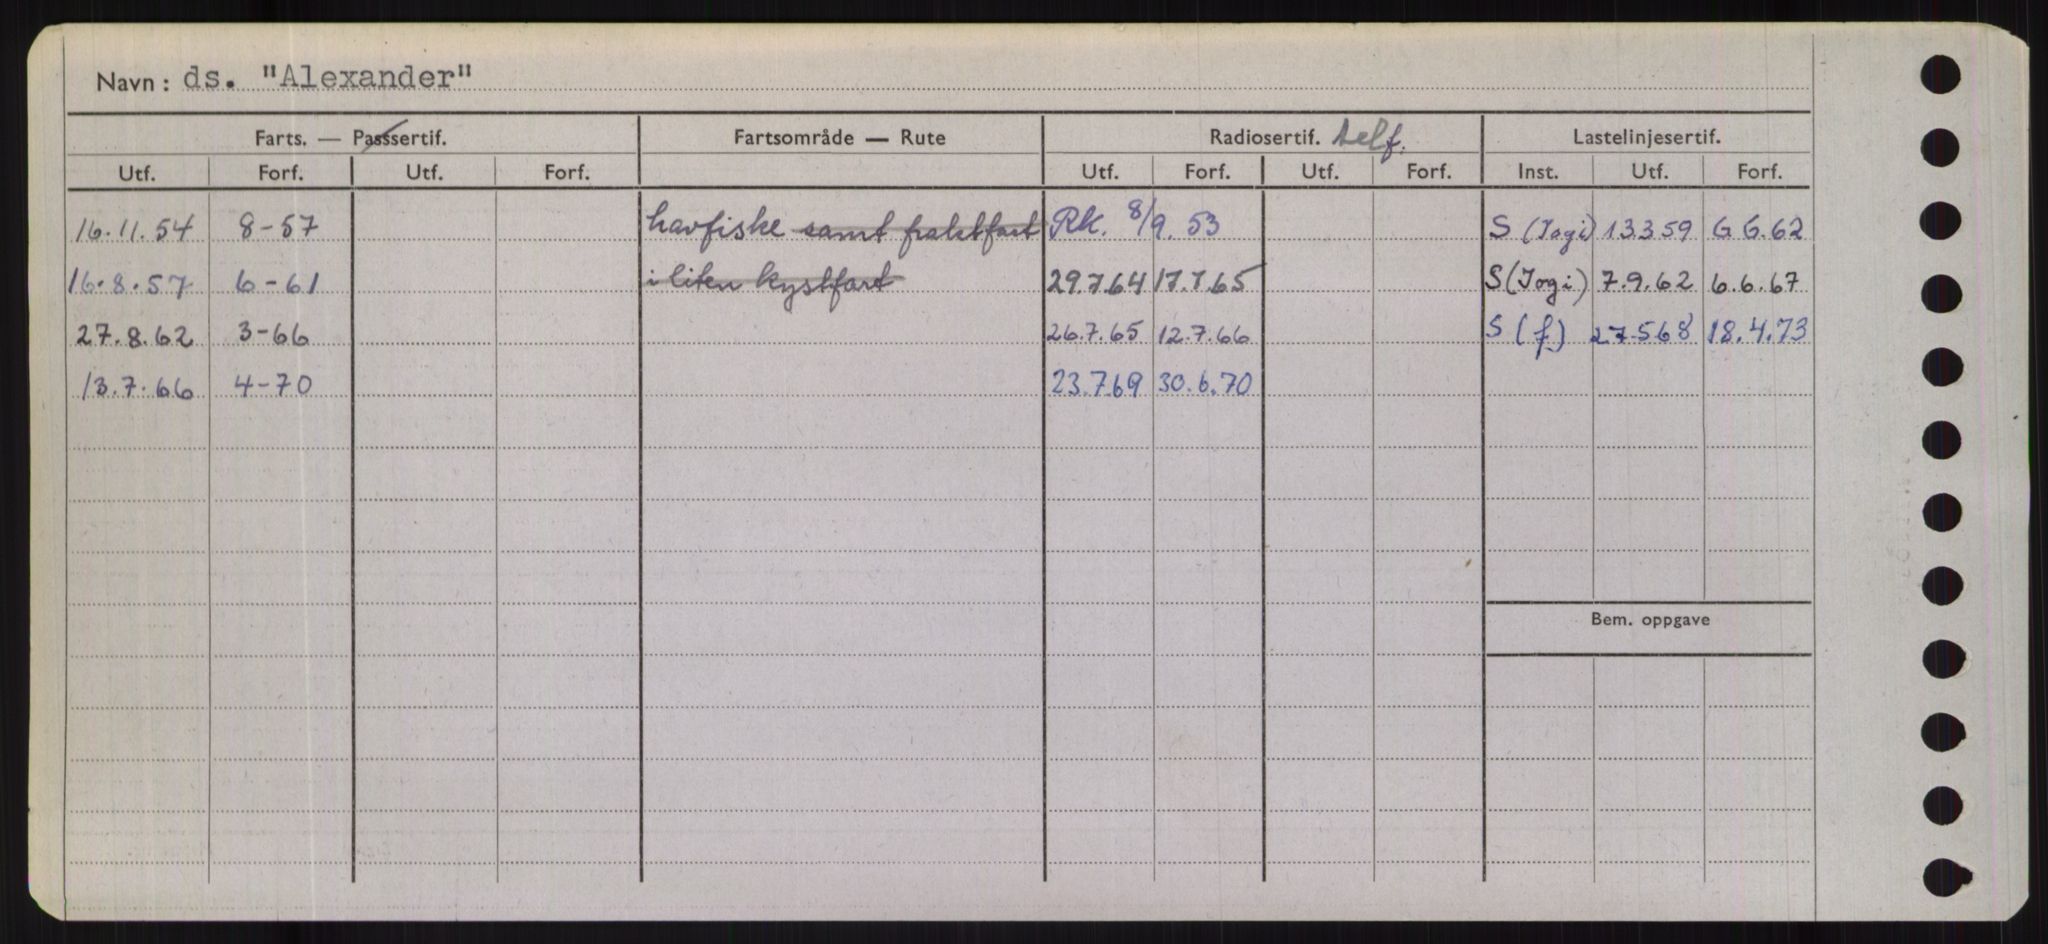 Navn: ds. "Alexander"
Farts. — Passsertif. Fartsområde — Rute Radiosertif. telf. Lastelinjesertif.
Utf. Forf. Utf. Forf. Utf. Forf. Utf. Forf. Inst. Utf. Forf.
16.11.54 8-57 havfiske samt fraktfart Rk. 8/9.53 S (Jogi) 13.3.59 6 6.62
16.8.57 6-61 i liten kystfart 29.7.64 17.7.65 S (Jogi) 7.9.62 6.6.67
27.8.62 3-66 26.7.65 12.7.66 S (f) 27.5.68 18.4.73
13.7.66 4-70 23.7.69 30.6.70
Bem. oppgave